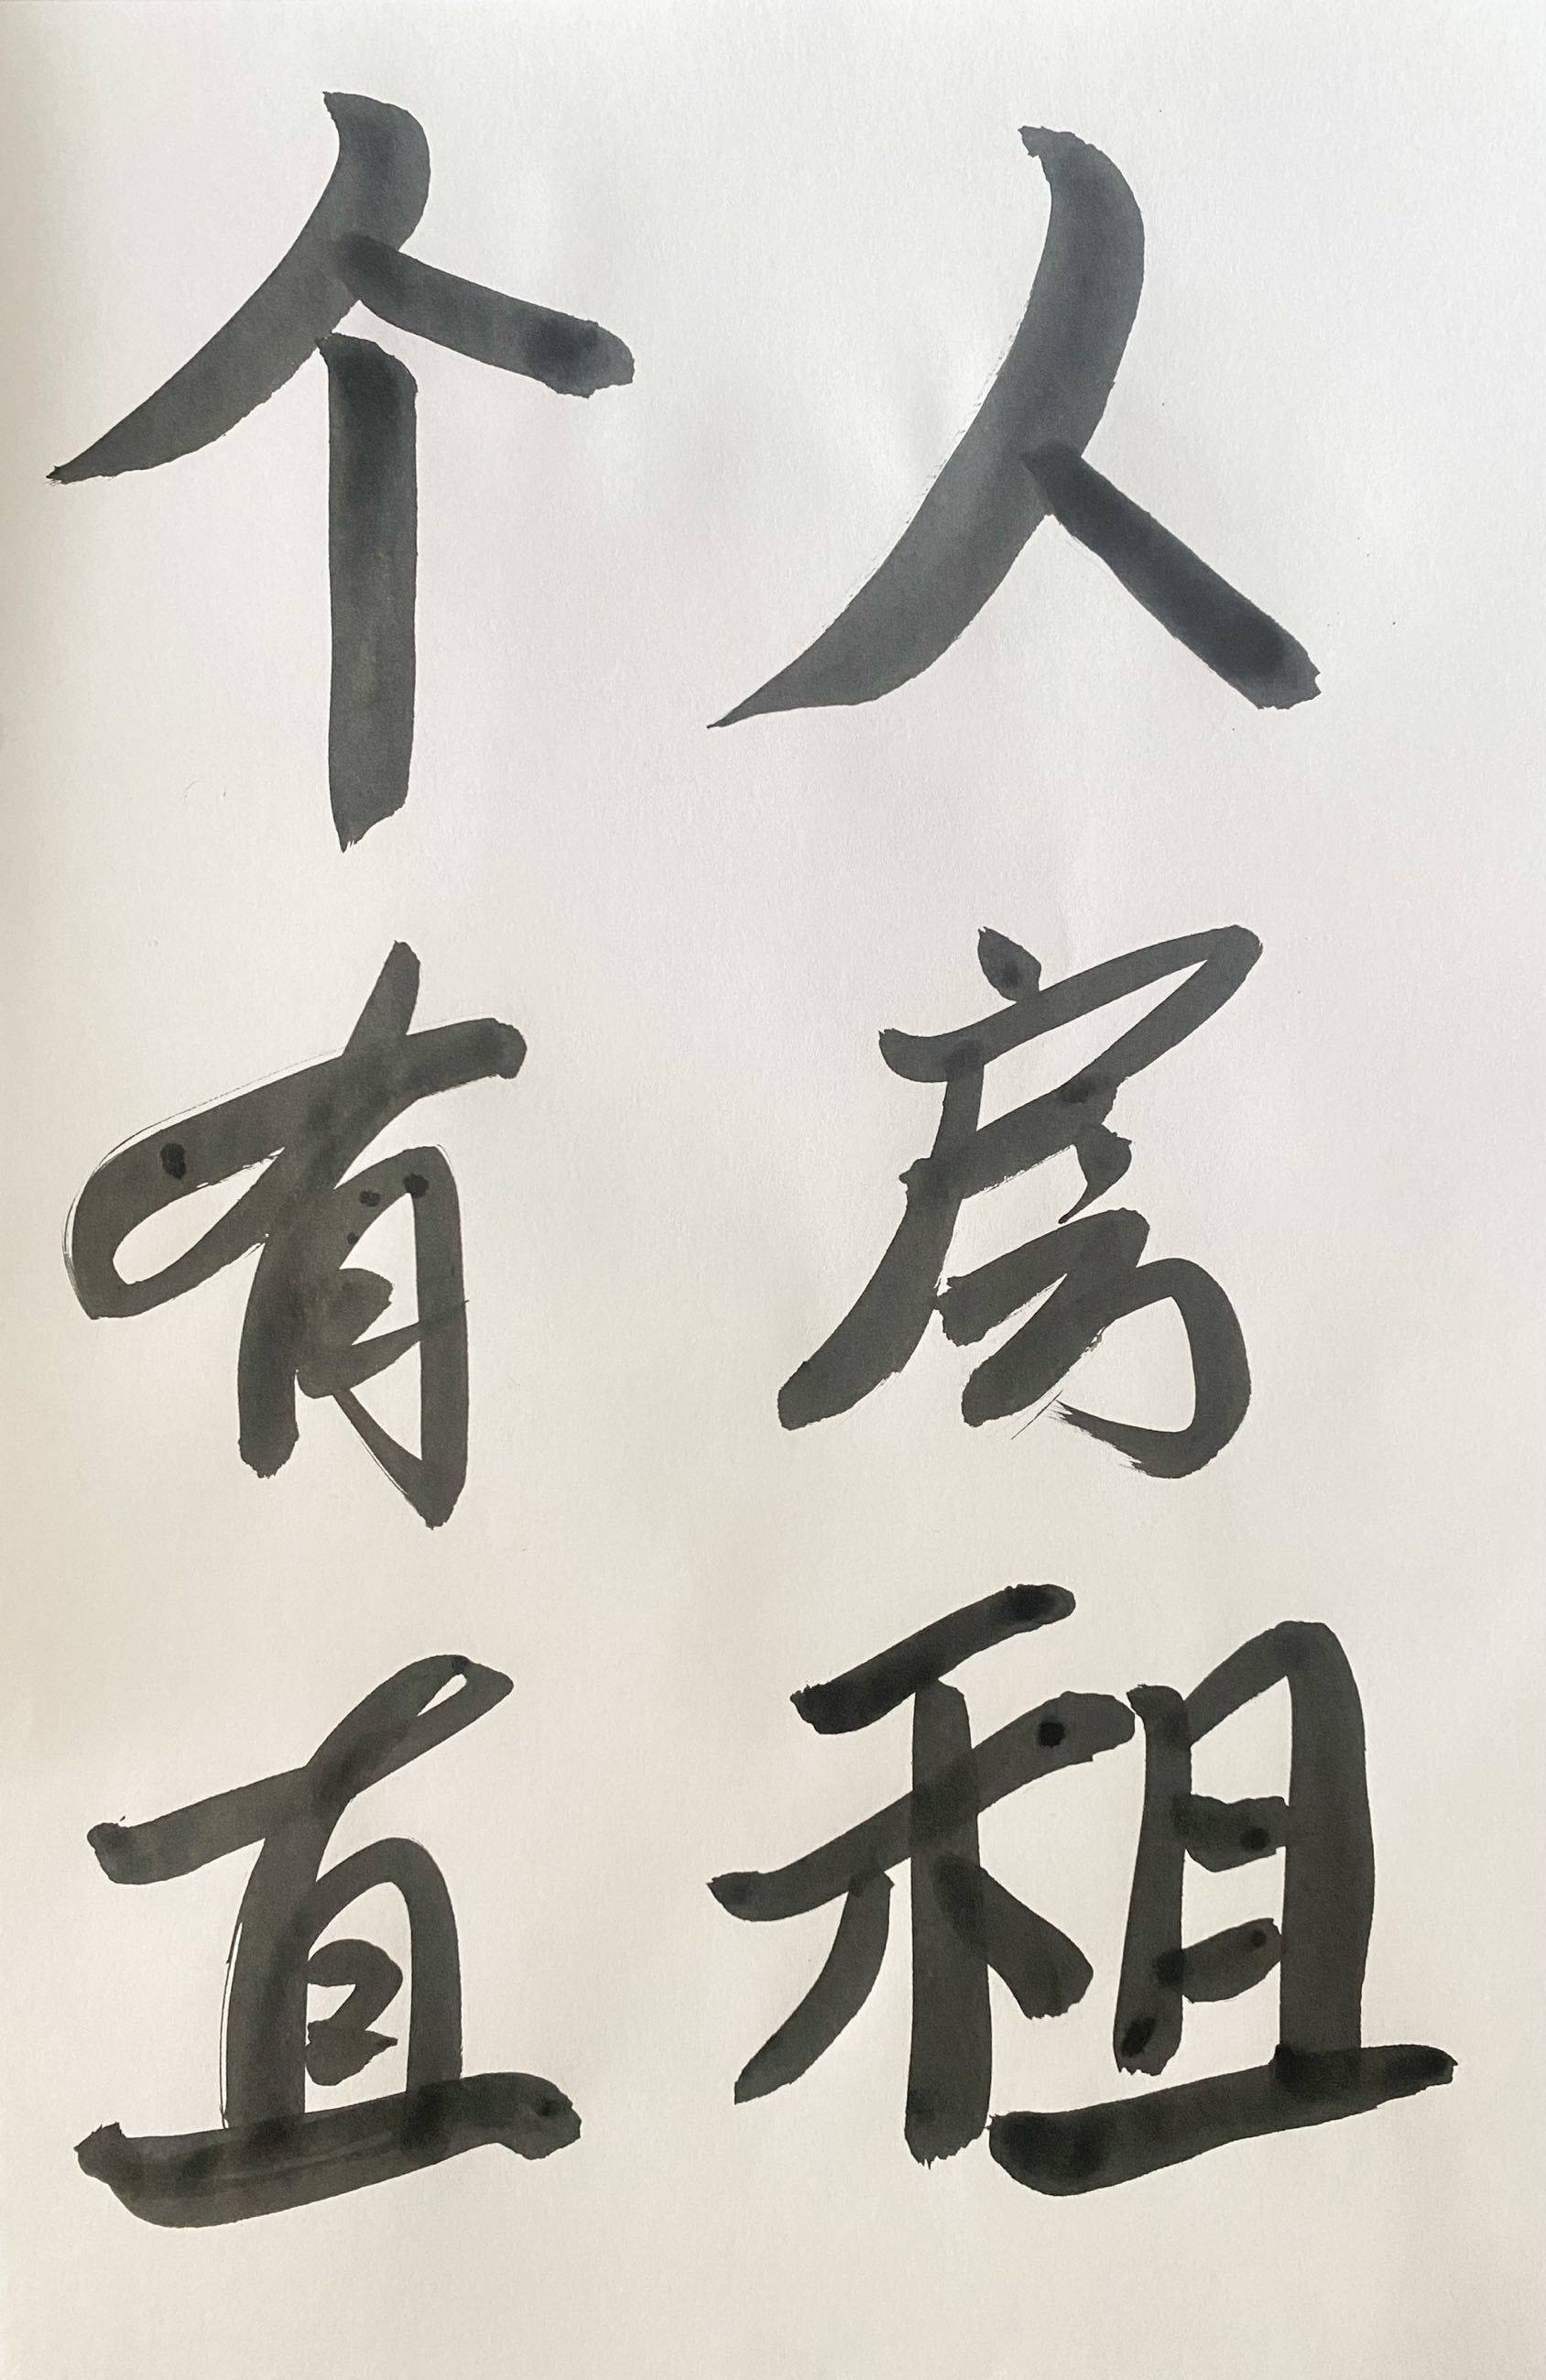 个人
有房
直租